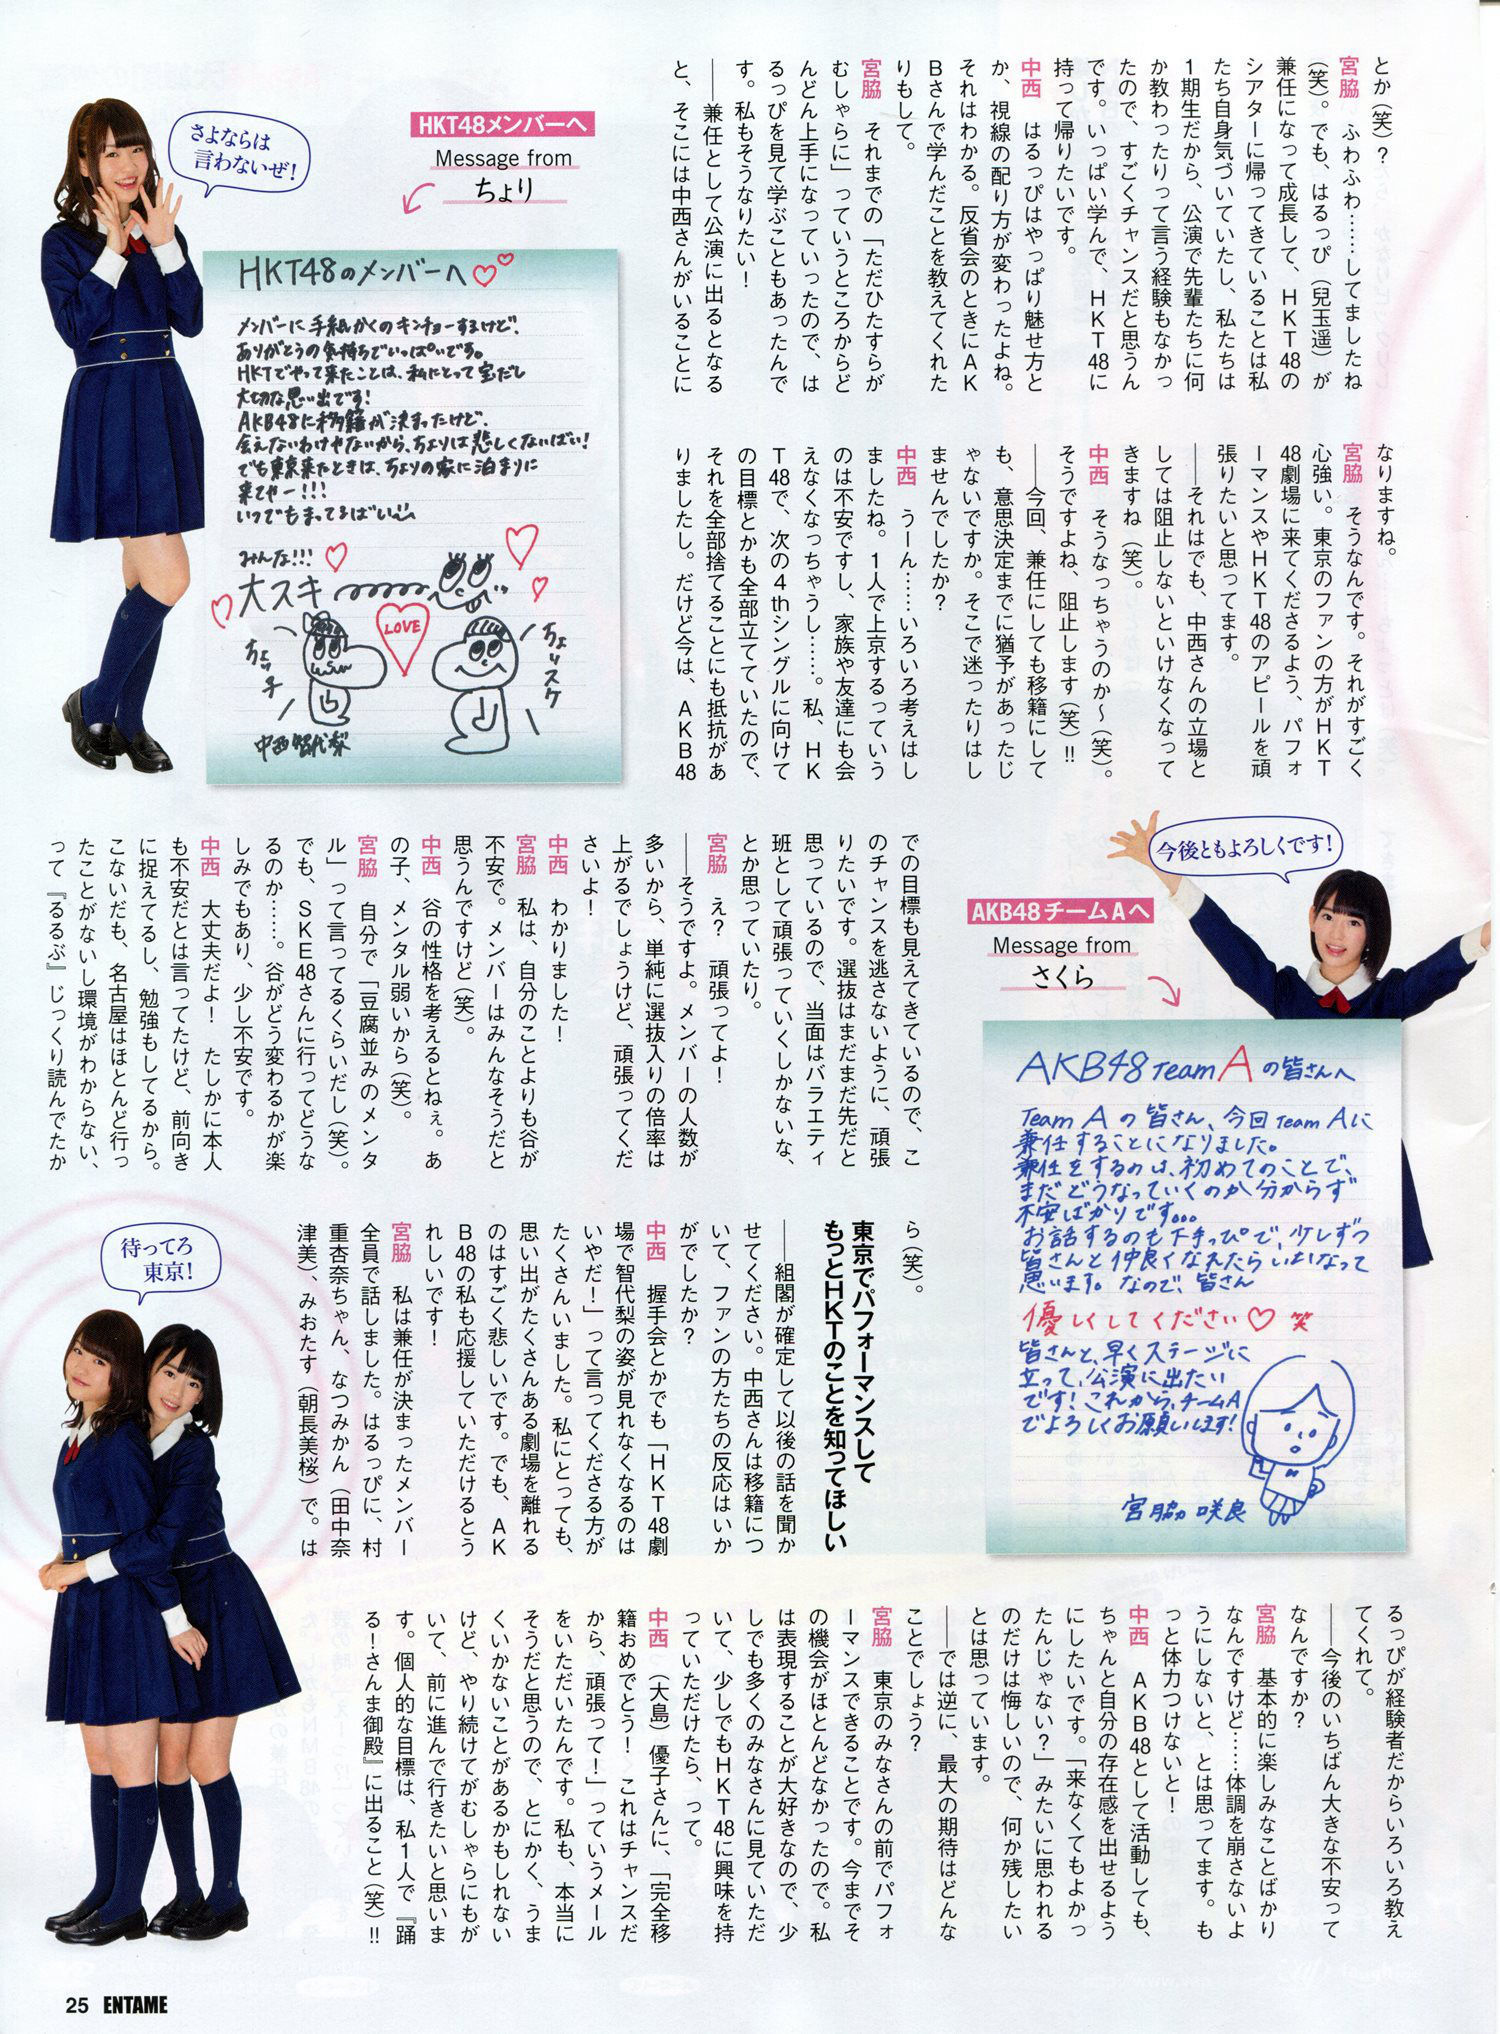 とか(笑)?
宮脇　ふわふわ……してましたね
(笑)。でも、はるっぴ(兒玉遥)が
兼任になって成長して、HKT48の
シアターに帰ってきていることは私
たち自身気づいていたし、私たちは
1期生だから、公演で先輩たちに何
か教わったりって言う経験もなかっ
たので、すごくチャンスだと思うん
です。いっぱい学んで、HKT48に
持って帰りたいです。
中西　はるっぴはやっぱり魅せ方と
か、視線の配り方が変わったよね。
それはわかる。反省会のときにAK
Bさんで学んだことを教えてくれた
りもして。
宮脇　それまでの「ただひたすらが
むしゃらに」っていうところからど
んどん上手になっていったので、は
るっぴを見て学ぶこともあったんで
す。私もそうなりたい!
――兼任として公演に出るとなる
と、そこには中西さんがいることに
HKT48メンバーへ
Message from
ちょり
さよならは
言わないぜ!
HKT48のメンバーへ♡♡
メンバーに手紙かくのキンチョーするけど、
ありがとうの気持ちでいっぱいです。
HKTでやって来たことは、私にとって宝だし
大切な思い出です!
AKB48に移籍が決まったけど、
会えないわけやないから、ちょりは悲しくないばい!
でも東京来たときは、ちょりの家に泊まりに
来てやー!!!
いつでもまってるばい
みんな!!!
大スキ
LOVE
ちょっ子
ちょりスケ
中西智代梨
なりますね。
宮脇　そうなんです。それがすごく
心強い。東京のファンの方がHKT
48劇場に来てくださるよう、パフォ
ーマンスやHKT48のアピールを頑
張りたいと思ってます。
――それはでも、中西さんの立場と
しては阻止しないといけなくなって
きますね(笑)。
中西　そうなっちゃうのか〜(笑)。
そうですよね、阻止します(笑)!!
――今回、兼任にしても移籍にして
も、意思決定までに猶予があったじ
ゃないですか。そこで迷ったりはし
ませんでしたか?
中西　うーん……いろいろ考えはし
ましたね。1人で上京するっていう
のは不安ですし、家族や友達にも会
えなくなっちゃうし……。私、HK
T48で、次の4thシングルに向けて
の目標とかも全部立てていたので、
それを全部捨てることにも抵抗があ
りましたし。だけど今は、AKB48
での目標も見えてきているので、こ
のチャンスを逃さないように、頑張
りたいです。選抜はまだまだ先だと
思っているので、当面はバラエティ
班として頑張っていくしかないな、
とか思っていたり。
宮脇　え?　頑張ってよ!
――そうですよ。メンバーの人数が
多いから、単純に選抜入りの倍率は
上がるでしょうけど、頑張ってくだ
さいよ!
中西　わかりました!
宮脇　私は、自分のことよりも谷が
不安で。メンバーはみんなそうだと
思うんですけど(笑)。
中西　谷の性格を考えるとねぇ。あ
の子、メンタル弱いから(笑)。
宮脇　自分で「豆腐並みのメンタ
ル」って言ってるくらいだし(笑)。
でも、SKE48さんに行ってどうな
るのか……。谷がどう変わるかが楽
しみでもあり、少し不安です。
中西　大丈夫だよ!　たしかに本人
も不安だとは言ってたけど、前向き
に捉えてるし、勉強もしてるから。
こないだも、名古屋はほとんど行っ
たことがないし環境がわからない、
って『るるぶ』じっくり読んでたか
今後ともよろしくです!
AKB48チームAへ
Message from
さくら
AKB48 Team Aの皆さんへ
Team Aの皆さん、今回Team Aに
兼任することになりました。
兼任をするのは、初めてのことで、
まだどうなっていくのか分からず
不安ばかりです。。。
お話するのも下手っぴで、少しずつ
皆さんと仲良くなれたらいいなって
思います。なので、皆さん
優しくしてください♡ 笑
皆さんと、早くステージに
立って、公演に出たい
です!これから、チームA
でよろしくお願いします!
宮脇咲良
ら(笑)。
東京でパフォーマンスして
もっとHKTのことを知ってほしい
――組閣が確定して以後の話を聞か
せてください。中西さんは移籍につ
いて、ファンの方たちの反応はいか
がでしたか?
中西　握手会とかでも「HKT48劇
場で智代梨の姿が見れなくなるのは
いやだ!」って言ってくださる方が
たくさんいました。私にとっても、
思い出がたくさんある劇場を離れる
のはすごく悲しいです。でも、AK
B48の私も応援していただけるとう
れしいです!
宮脇　私は兼任が決まったメンバー
全員で話しました。はるっぴに、村
重杏奈ちゃん、なつみかん(田中奈
津美)、みおたす(朝長美桜)で。は
待ってろ
東京!
るっぴが経験者だからいろいろ教え
てくれて。
――今後のいちばん大きな不安って
なんですか?
宮脇　基本的に楽しみなことばかり
なんですけど……体調を崩さないよ
うにしないと、とは思ってます。も
っと体力つけないと!
中西　AKB48として活動しても、
ちゃんと自分の存在感を出せるよう
にしたいです。「来なくてもよかっ
たんじゃない?」みたいに思われる
のだけは悔しいので、何か残したい
とは思っています。
――では逆に、最大の期待はどんな
ことでしょう?
宮脇　東京のみなさんの前でパフォ
ーマンスできることです。今までそ
の機会がほとんどなかったので。私
は表現することが大好きなので、少
しでも多くのみなさんに見ていただ
いて、少しでもHKT48に興味を持
っていただけたら、って。
中西　(大島)優子さんに、「完全移
籍おめでとう!　これはチャンスだ
から、頑張って!」っていうメール
をいただいたんです。私も、本当に
そうだと思うので、とにかく、うま
くいかないことがあるかもしれない
けど、やり続けてがむしゃらにもが
いて、前に進んで行きたいと思いま
す。個人的な目標は、私1人で『踊
る!さんま御殿』に出ること(笑)!!
25 ENTAME